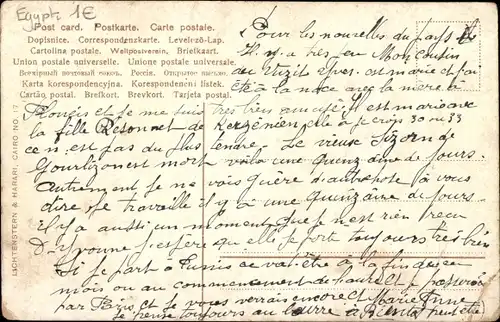 Egypt. 1E
Post card. Postkarte. Carte postale.
Dopisnice. Correspondenzkarte. Levelező-Lap.
Cartolina postale. Weltpostverein. Briefkaart.
Union postale universelle. Unione postale universale.
Всемірный почтовый союзъ. Россія. Открытое письмо.
Karta korespondencyjna. Korespondenční lístek.
Cartão postal. Brefkort. Brevkort. Tarjeta postal.
LICHTENSTERN & HARARI, CAIRO NO. 17
Pour les nouvelles du pays
Il n'y a très peu Mon Cousin
Yves est marié et j'ai
été à la noce avec la mère à
et je me suis très bien amusé Il est marié avec
la fille de elle a je crois 30 ou 33
ce n'est pas du plus tendre. Le vieux
mort voilà une Quinzaine de jours.
Autrement je ne vois guère d'autre chose à vous
dire, je travaille il y a une quinzaine de jours
il y a aussi un moment que je n'ai rien reçu
D'Yvonne j'espère qu'elle se porte toujours très bien
Si je part à Tunis ce va être à la fin de ce
mois ou au commencement de l'autre et je passerai
par et je vous verrais encore et Marie Anne
je pense toujours au peut être